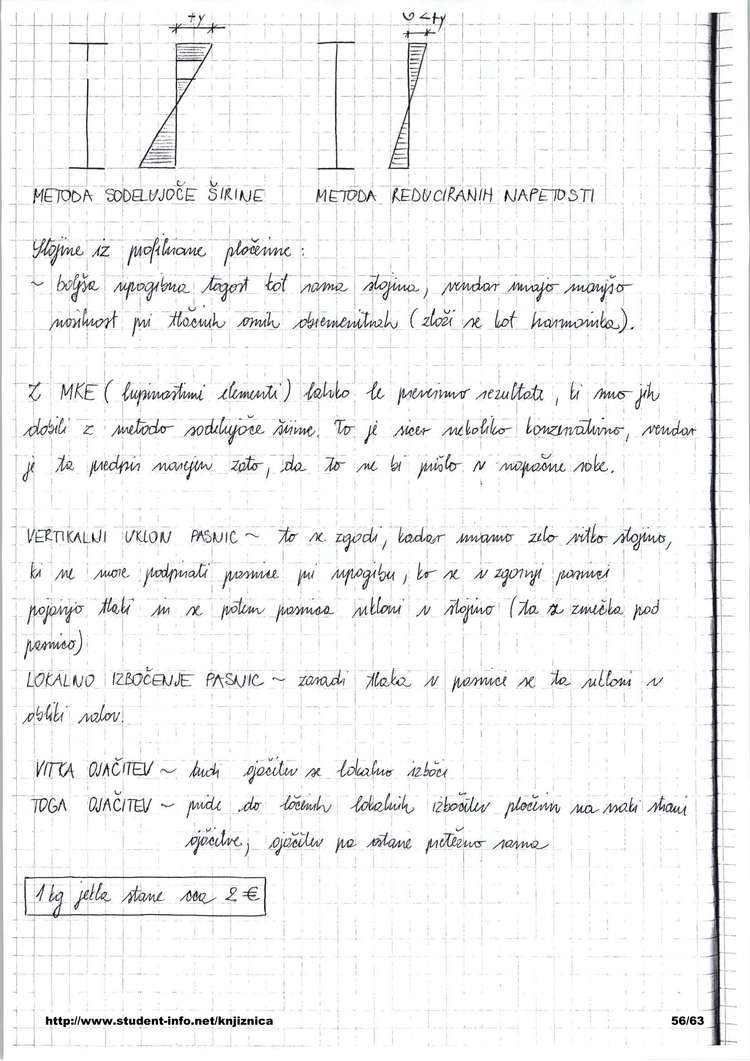 fy
σ < fy
METODA SODELUJOČE ŠIRINE METODA REDUCIRANIH NAPETOSTI
Stojine iz profilirane pločevine :
~ boljša upogibna togost kot ravna stojina, vendar imajo manjšo
nosilnost pri tlačnih osnih obremenitvah (zloži se kot harmonika).
Z MKE (lupinastimi elementi) lahko le preverimo rezultate, ki smo jih
dobili z metodo sodelujoče širine. To je sicer nekoliko konzervativno, vendar
je ta predpis narejen zato, da to ne bi prišlo v napačne roke.
VERTIKALNI UKLON PASNIC ~ to se zgodi, kadar imamo zelo vitko stojino,
ki ne more podpirati pasnice pri upogibu, ko se v zgornji pasnici
pojavijo tlaki in se potem pasnica ukloni v stojino (ta se zmečka pod
pasnico)
LOKALNO IZBOČENJE PASNIC ~ zaradi tlaka v pasnici se ta ukloni v
obliki valov.
VITKA OJAČITEV ~ tudi ojačitev se lokalno izboči
TOGA OJAČITEV ~ pride do ločenih lokalnih izbočitev pločevin na vsaki strani
ojačitve, ojačitev pa ostane pretežno ravna
1 kg jekla stane cca 2 €
http://www.student-info.net/knjiznica 56/63